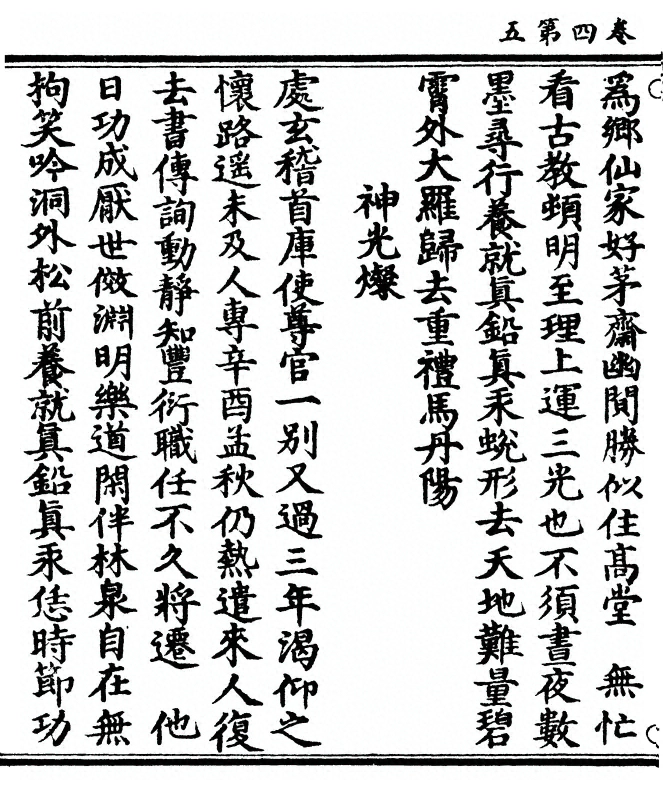 卷四第五
爲鄉仙家好茅齋幽閒勝似住高堂　無忙
看古教頻明至理上運三光也不須晝夜數
墨尋行養就眞鉛眞汞蛻形去天地難量碧
霄外大羅歸去重禮馬丹陽
神光燦
處玄稽首庫使尊官一别又過三年渴仰之
懷路遥未及人專辛酉孟秋仍熱遣來人復
去書傳詢動静知豐衍職任不久將遷　他
日功成厭世傚淵明樂道閑伴林泉自在無
拘笑吟洞外松前養就眞鉛眞汞恁時節功